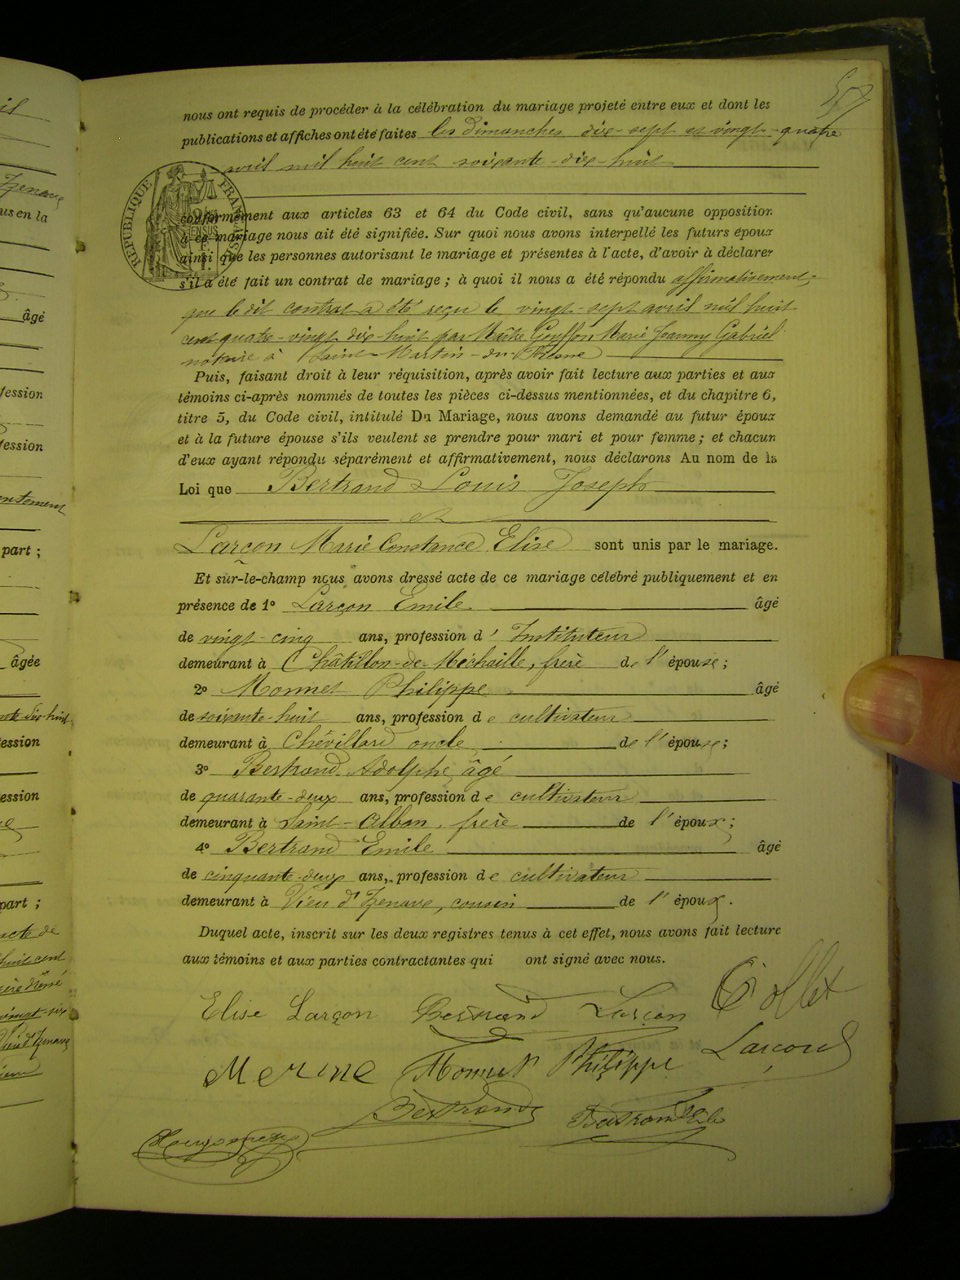 nous ont requis de procéder à la célébration du mariage projeté entre eux et dont les
publications et affiches ont été faites les dimanches dix-sept et vingt-quatre
avril mil huit cent soixante-dix-huit
RÉPUBLIQUE FRANÇAISE
conformément aux articles 63 et 64 du Code civil, sans qu'aucune opposition
à ce mariage nous ait été signifiée. Sur quoi nous avons interpellé les futurs époux
ainsi que les personnes autorisant le mariage et présentes à l'acte, d'avoir à déclarer
s'il a été fait un contrat de mariage ; à quoi il nous a été répondu affirmativement,
que le dit contrat a été reçu le vingt-sept avril mil huit
cent quatre-vingt dix-huit par Maître Marie Joanny Gabriel
notaire à Saint-Martin-du-Fresne
Puis, faisant droit à leur réquisition, après avoir fait lecture aux parties et aux
témoins ci-après nommés de toutes les pièces ci-dessus mentionnées, et du chapitre 6,
titre 5, du Code civil, intitulé Du Mariage, nous avons demandé au futur époux
et à la future épouse s'ils veulent se prendre pour mari et pour femme ; et chacun
d'eux ayant répondu séparément et affirmativement, nous déclarons Au nom de la
Loi que Bertrand Louis Joseph
et
Larçon Marie Constance Elise sont unis par le mariage.
Et sur-le-champ nous avons dressé acte de ce mariage célébré publiquement et en
présence de 1º Larçon Emile âgé
de vingt-cinq ans, profession d'Instituteur
demeurant à Châtillon-de-Michaille, frère de l'épouse ;
2º Monnet Philippe âgé
de soixante-huit ans, profession de cultivateur
demeurant à Chévillard oncle de l'épouse ;
3º Bertrand Adolphe, âgé
de quarante-deux ans, profession de cultivateur
demeurant à Saint-Alban, frère de l'époux ;
4º Bertrand Emile âgé
de cinquante-deux ans, profession de cultivateur
demeurant à Vieu d'Izenave, cousin de l'époux.
Duquel acte, inscrit sur les deux registres tenus à cet effet, nous avons fait lecture
aux témoins et aux parties contractantes qui ont signé avec nous.
Elise Larçon Bertrand Larçon Collet
Merine Monnet Philippe Larçon
Bertrand Bertrand